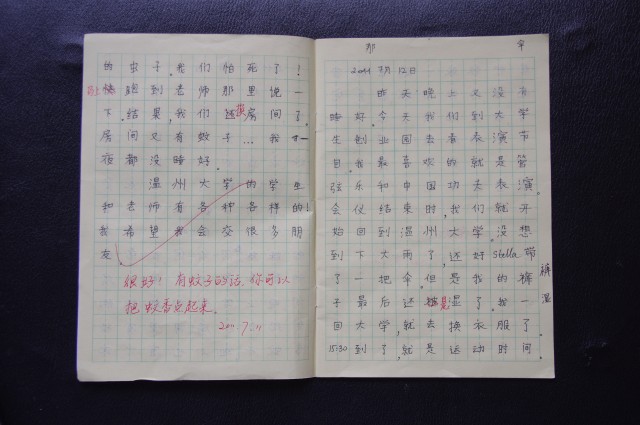 的虫子,我们怕死了!
快跑到老师那里说一
下。结果,我们还换房间了。
房间又有蚊子...我一
夜都没睡好。
温州大学的学生
和老师有各种各样的!
我希望我会交很多朋
友
很好!有蚊子的话,你可以
把蚊香点起来。
2011.7.11
2011 7月12日
昨天晚上又没有
睡好。今天我们到大学
生创业园去看表演节
目。我最喜欢的就是管
弦乐和中国功夫表演。
会仪结束时,我们就开
始回到温州大学。没想
到下大雨了,还好stella带
了一把伞。但是我的裤
子最后还是湿了。我一
回大学,就去换衣服了。
15:30到了,就是运动时间。
裤
湿